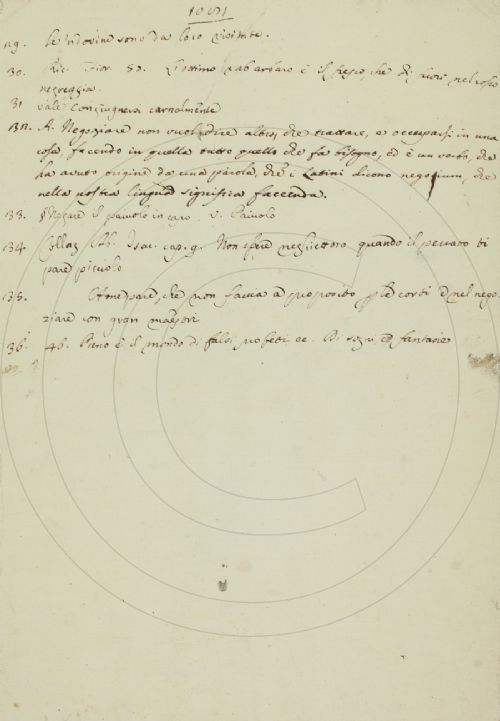 29. le indovine sono da loro
30. Ric. Fior. 50. L'ottimo rabarbaro è il fresco, che di fuori nel rosso
negreggia.
31 vale Congiugnersi carnalmente
32. A. Negoziare non vuol dire altro, che trattare, e occuparsi in una
cosa, facendo in quella tutto quello che fa bisogno, ed è un verbo, che
ha avuto origine da una parola, che i Latini dicono negotium, che
nella nostra lingua significa faccenda.
33. il paiuolo in capo. v. Paiuolo
34. Collaz. Ab. Isac. cap. 9. Non essere neghiettoso quando il peccato ti
pare picciolo
35. non faccia a proposito nel nego-
ziare con gran maestri
36. 46. Pieno è il mondo di falsi profeti ec. Di sogni ed fantasie